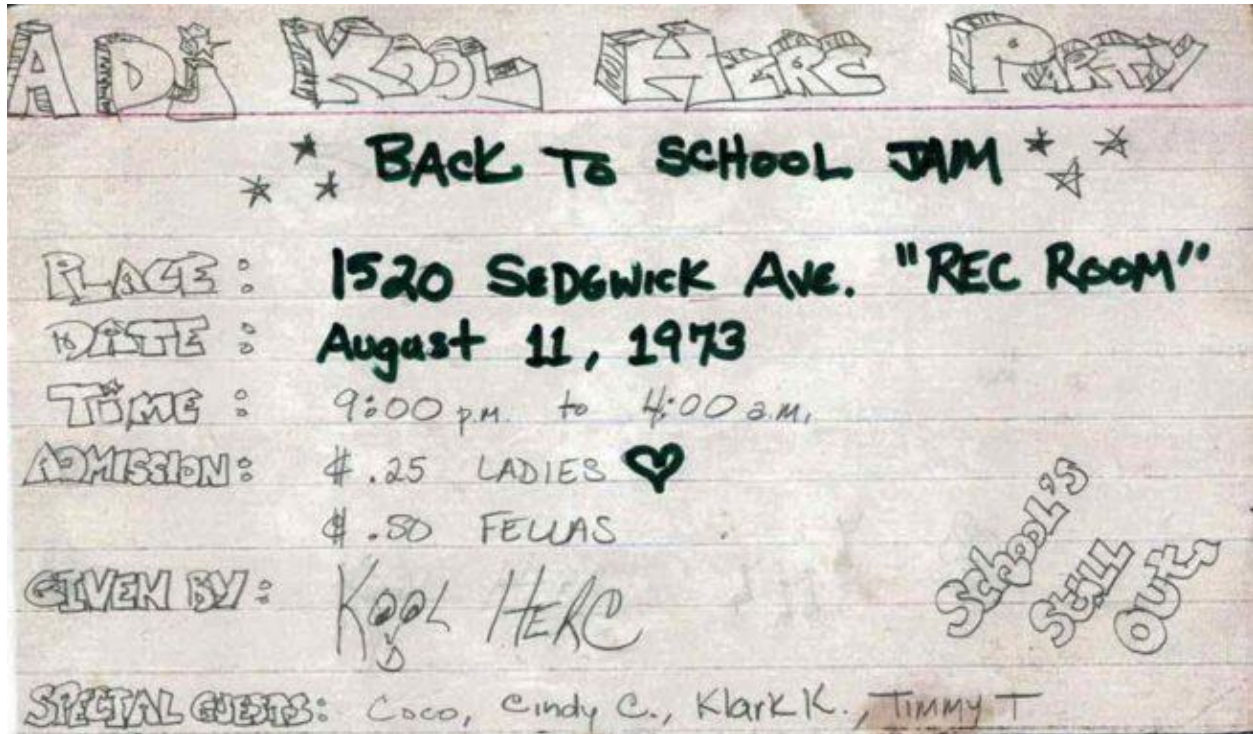 A DJ KOOL HERC PARTY
BACK TO SCHOOL JAM
PLACE: 1520 SEDGWICK AVE. "REC ROOM"
DATE: August 11, 1973
TIME: 9:00 p.m. to 4:00 a.m.
ADMISSION: $.25 LADIES
$.50 FELLAS
School's
STILL
OUT
GIVEN BY: KOOL HERC
SPECIAL GUESTS: Coco, Cindy C., Klark K., TIMMY T